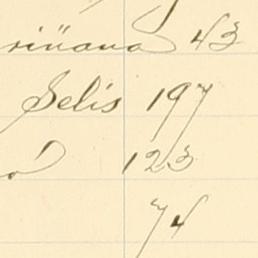 riñana 43
Selis 197
o 123
74